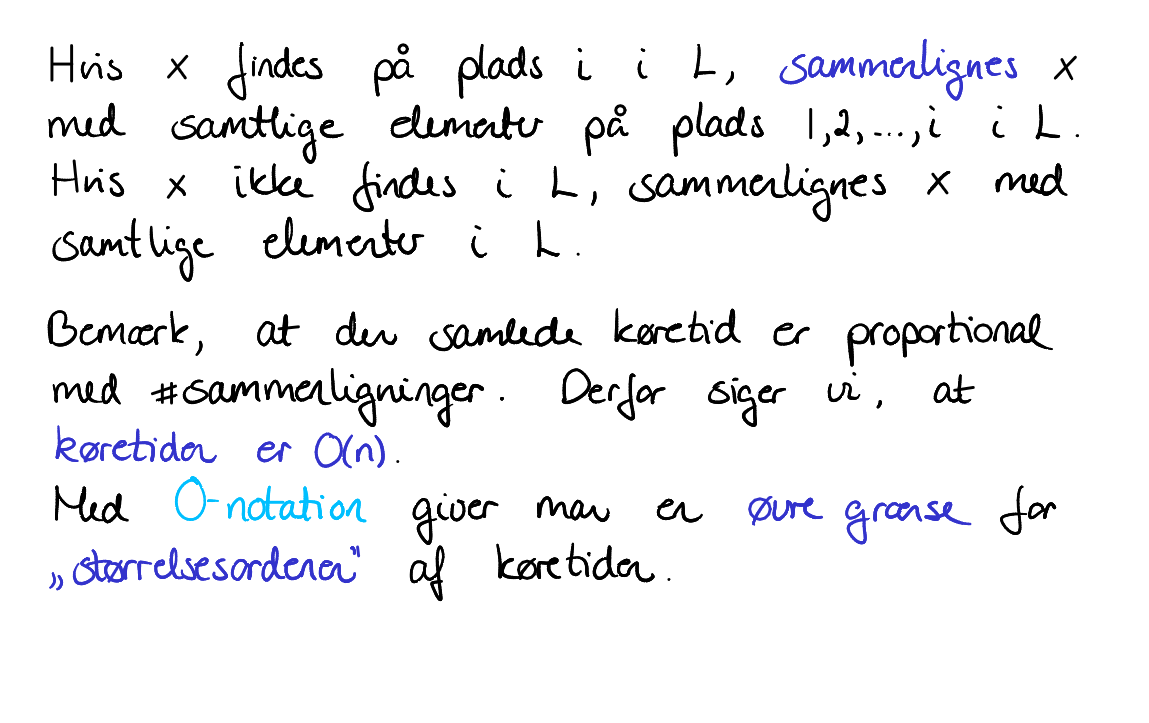 Hvis x findes på plads i i L, sammenlignes x
med samtlige elementer på plads 1,2,...,i i L.
Hvis x ikke findes i L, sammenlignes x med
samtlige elementer i L.
Bemærk, at den samlede køretid er proportional
med #sammenligninger. Derfor siger vi, at
køretiden er O(n).
Med O-notation giver man en øvre grænse for
„størrelsesordenen" af køretiden.